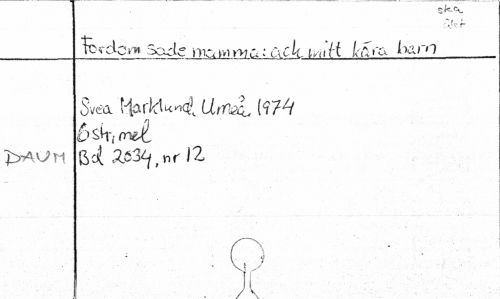 Fordom sade mamma: ack mitt kära barn
Svea Marklund, Umeå 1974
6 str, mel
DAUM Bd 2034, nr 12